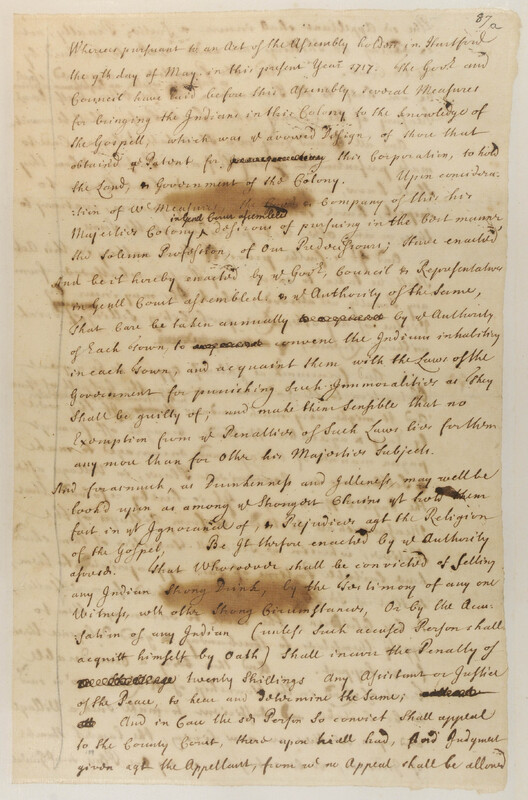 87/a
Whereas pursuant to an Act of the Assembly holden in Hartford
the 9th day of May in this present Year 1717. the Govr and
Council have laid before this Assembly several Measures
for bringing the Indians in this Colony to the knowledge of
the Gospell, which was ye avowed Design, of those that
obtained ye Patent for this Corporation, to hold
the Land, & Government of the Colony. Upon considera-
-tion of wch Measures, the Govr & Company of this his
in Genll Court assembled
Majesties Colony desirous of pursuing in the best manner
the Solemn Profession, of our Predecessours; Have enacted
And be it hereby enacted by ye Govr, Council & Representatives
in Genll Court assembled, & ye Authority of the Same,
That Care be taken annually by ye Authority
of Each Town to convene the Indians inhabiting
in each Town, and acquaint them with the Laws of the
Government for punishing Such Immoralities as they
Shall be guilty of; and make them Sensible that no
Exemption from ye Penalties of Such Laws lies for them
any more than for other his Majesties Subjects.
And forasmuch as Drunkenness and Idleness, may well be
look'd upon as among ye Strongest Chains yt hold them
fast in yr Ignorance of, & Prejudices agt the Religion
of the Gospel, Be It th'fore enacted by ye Authority
aforesd. That Whosoever shall be convicted of Selling
any Indian Strong Drink, by the testimony of any one
Witness, wth other Strong Circumstances, Or by the Accu-
sation of any Indian (unless Such accused Person shall
acquitt himself by Oath) Shall incurr the Penalty of
twenty Shillings Any Assistant or Justice
of the Peace, to hear and determine the Same;
And in Case the sd Person So convict Shall appeal
to the County Court, there upon triall had, And Judgment
given agt the Appellant, from wch no Appeal shall be allowed